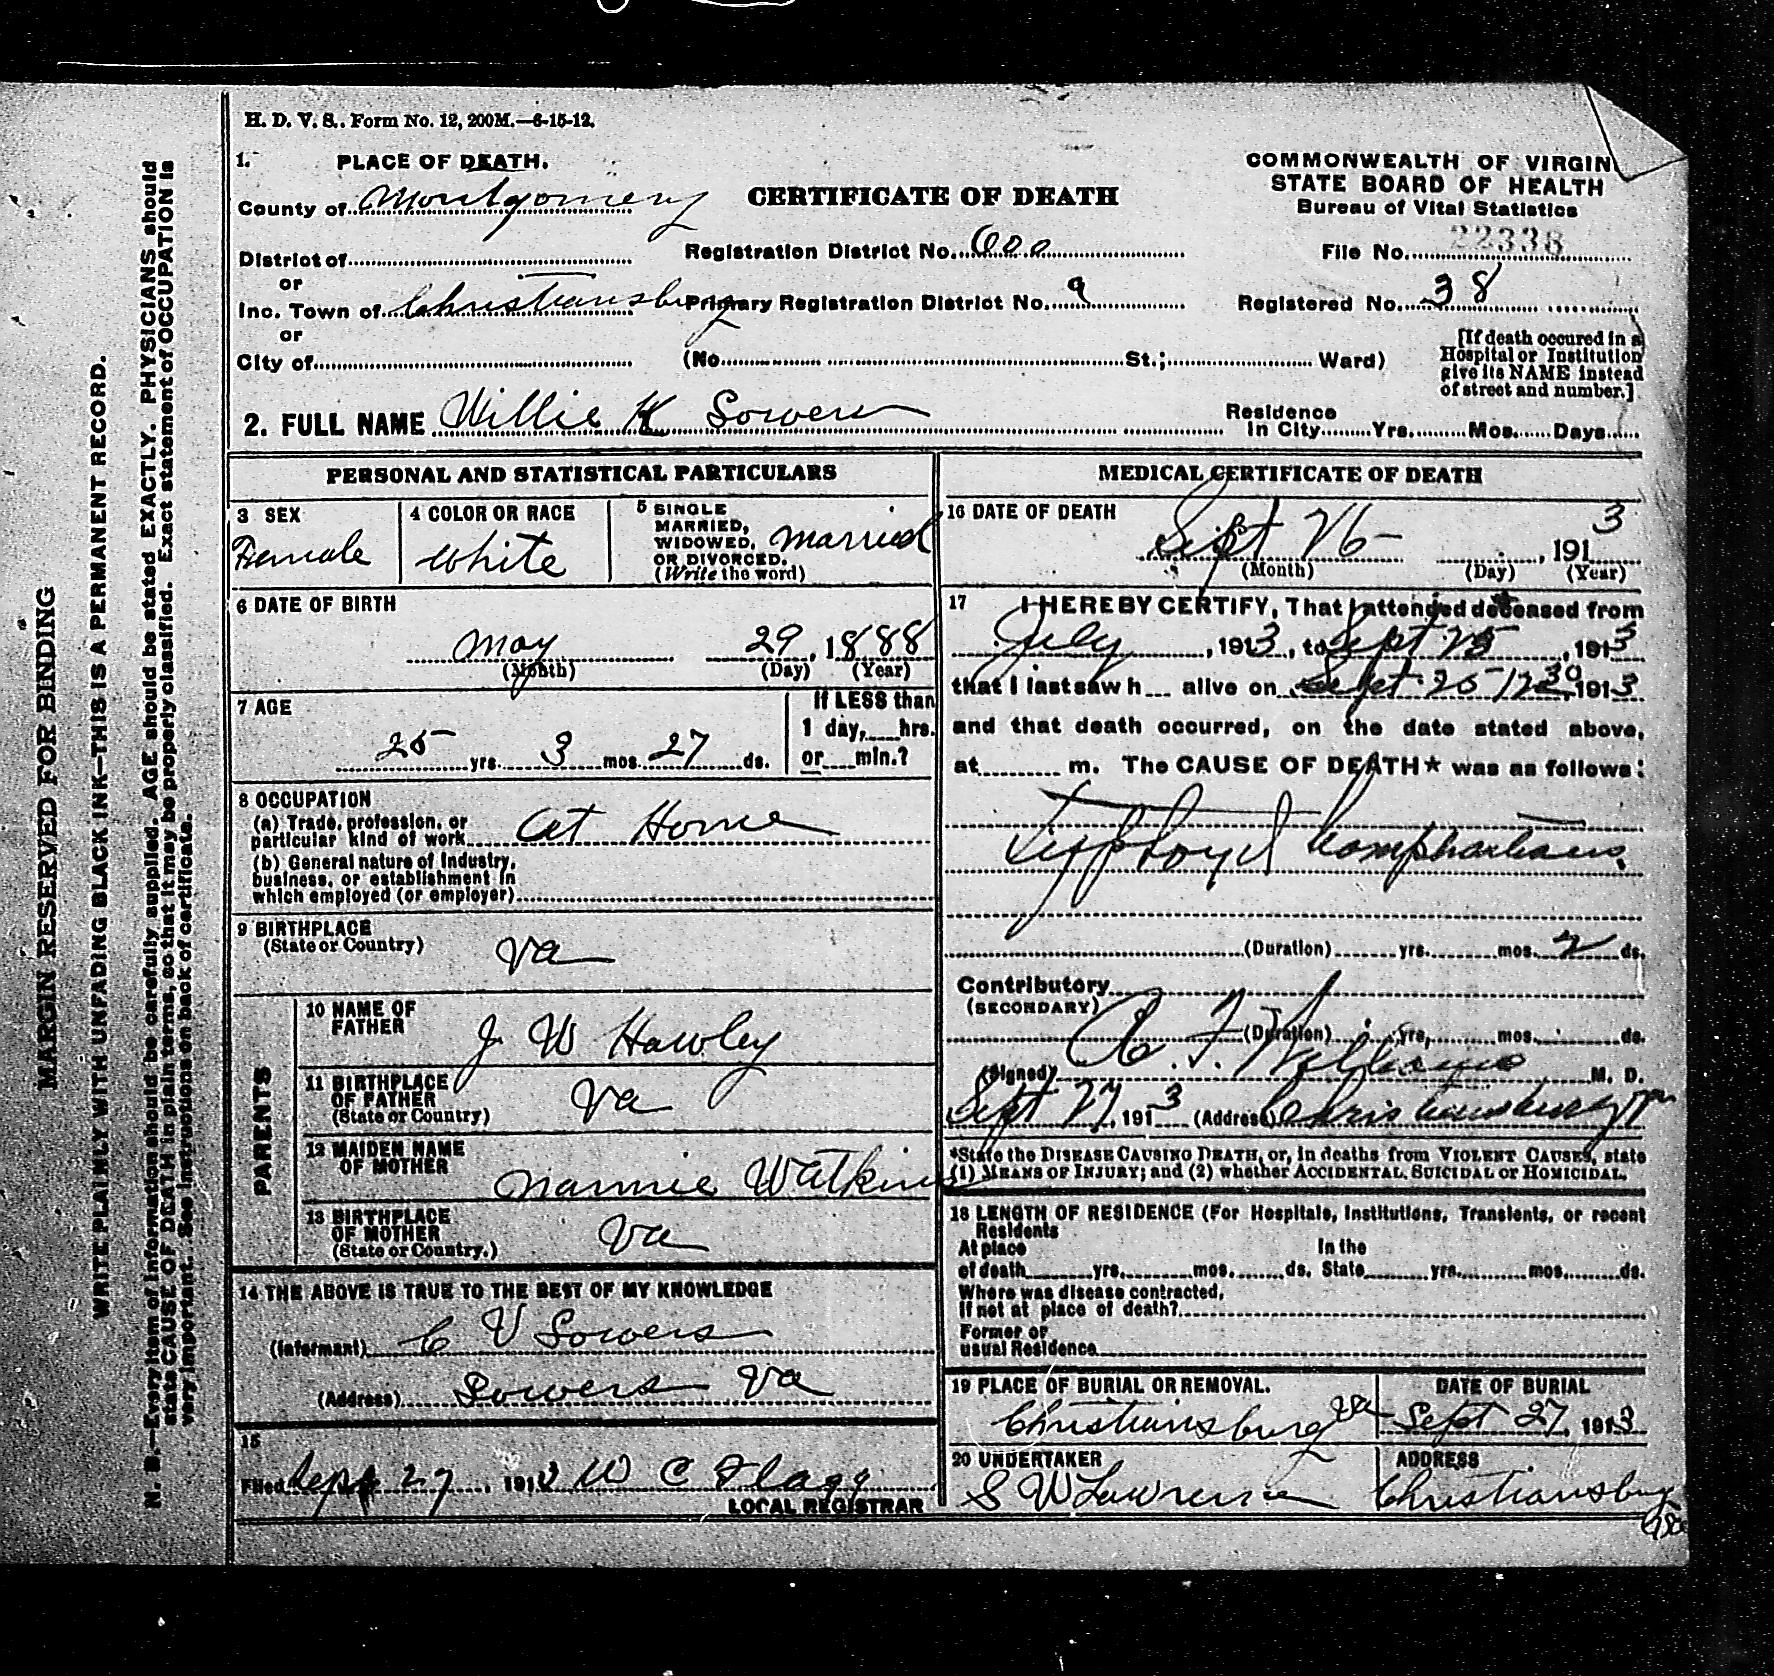 H. D. V. S.. Form No. 12, 200M.—6-15-12.
1. PLACE OF DEATH.
County of Montgomery
CERTIFICATE OF DEATH
COMMONWEALTH OF VIRGIN
STATE BOARD OF HEALTH
Bureau of Vital Statistics
District of
Registration District No. 600
File No. 22338
or
Inc. Town of Christiansburg
Primary Registration District No. 9
Registered No. 38
or
City of
(No. St.; Ward)
[If death occured in a
Hospital or Institution
give its NAME instead
of street and number.]
2. FULL NAME Willie H Sowers
Residence
In City Yrs. Mos. Days
PERSONAL AND STATISTICAL PARTICULARS
3 SEX
Female
4 COLOR OR RACE
White
5 SINGLE
MARRIED,
WIDOWED,
OR DIVORCED.
(Write the word)
Married
6 DATE OF BIRTH
May 29, 1888
(Month) (Day) (Year)
7 AGE
25 yrs. 3 mos. 27 ds.
If LESS than
1 day, hrs.
or min.?
8 OCCUPATION
(a) Trade, profession, or
particular kind of work At Home
(b) General nature of Industry,
business, or establishment in
which employed (or employer)
9 BIRTHPLACE
(State or Country)
Va
PARENTS
10 NAME OF
FATHER
J. W Hawley
11 BIRTHPLACE
OF FATHER
(State or Country)
Va
12 MAIDEN NAME
OF MOTHER
Nannie Watkins
13 BIRTHPLACE
OF MOTHER
(State or Country.)
Va
14 THE ABOVE IS TRUE TO THE BEST OF MY KNOWLEDGE
(Informant) C V Sowers
(Address) Sowers Va
15
Filed Sept 27, 1913 W C Flagg
LOCAL REGISTRAR
MEDICAL CERTIFICATE OF DEATH
16 DATE OF DEATH
Sept 26 — , 1913
(Month) (Day) (Year)
17 I HEREBY CERTIFY, That I attended deceased from
July , 1913, to Sept 25 , 1913
that I last saw h alive on Sept 25 12 30, 1913
and that death occurred, on the date stated above,
at m. The CAUSE OF DEATH★ was as follows:
Typhoyd
(Duration) yrs. mos. 2 ds.
Contributory
(SECONDARY)
(Duration) yrs, mos. ds.
(Signed) A. F. Williams M. D.
Sept 27, 1913 (Address) Christiansburg Va
*State the DISEASE CAUSING DEATH, or, in deaths from VIOLENT CAUSES, state
(1) MEANS OF INJURY; and (2) whether ACCIDENTAL, SUICIDAL or HOMICIDAL.
18 LENGTH OF RESIDENCE (For Hospitals, Institutions, Transients, or recent
Residents
At place In the
of death yrs. mos. ds. State yrs. mos. ds.
Where was disease contracted,
If not at place of death?
Former or
usual Residence
19 PLACE OF BURIAL OR REMOVAL.
Christiansburg Va
DATE OF BURIAL
Sept 27, 1913
20 UNDERTAKER
S W Lawrence
ADDRESS
Christiansburg
Va
MARGIN RESERVED FOR BINDING
WRITE PLAINLY WITH UNFADING BLACK INK—THIS IS A PERMANENT RECORD.
N. B.—Every item of information should be carefully supplied. AGE should be stated EXACTLY. PHYSICIANS should
state CAUSE OF DEATH in plain terms, so that it may be properly classified. Exact statement of OCCUPATION is
very important. See instructions on back of certificate.